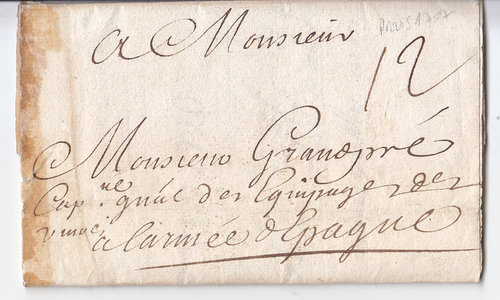 A Monsieur
Paris 1702
12
Monsieur Grandpré
Cap.ne gnãl des Equipages des
a Larmée d'Espagne